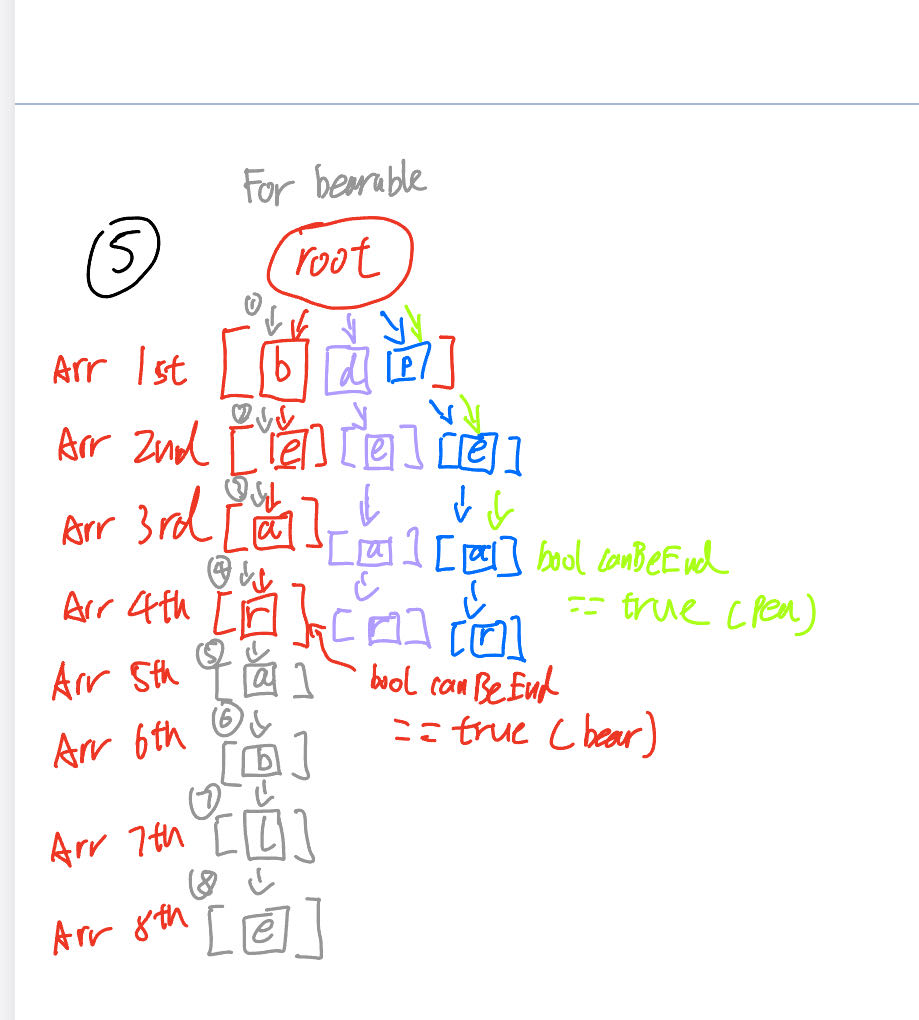 For bearable
5
root
①
Arr 1st [ b d p ]
②
Arr 2nd [ e ] [ e ] [ e ]
③
Arr 3rd [ a ] [ a ] [ a ] bool canBeEnd
④
Arr 4th [ r ] [ r ] [ r ] == true (pea)
⑤
Arr 5th [ a ] bool canBeEnd
⑥
== true (bear)
Arr 6th [ b ]
⑦
Arr 7th [ l ]
⑧
Arr 8th [ e ]